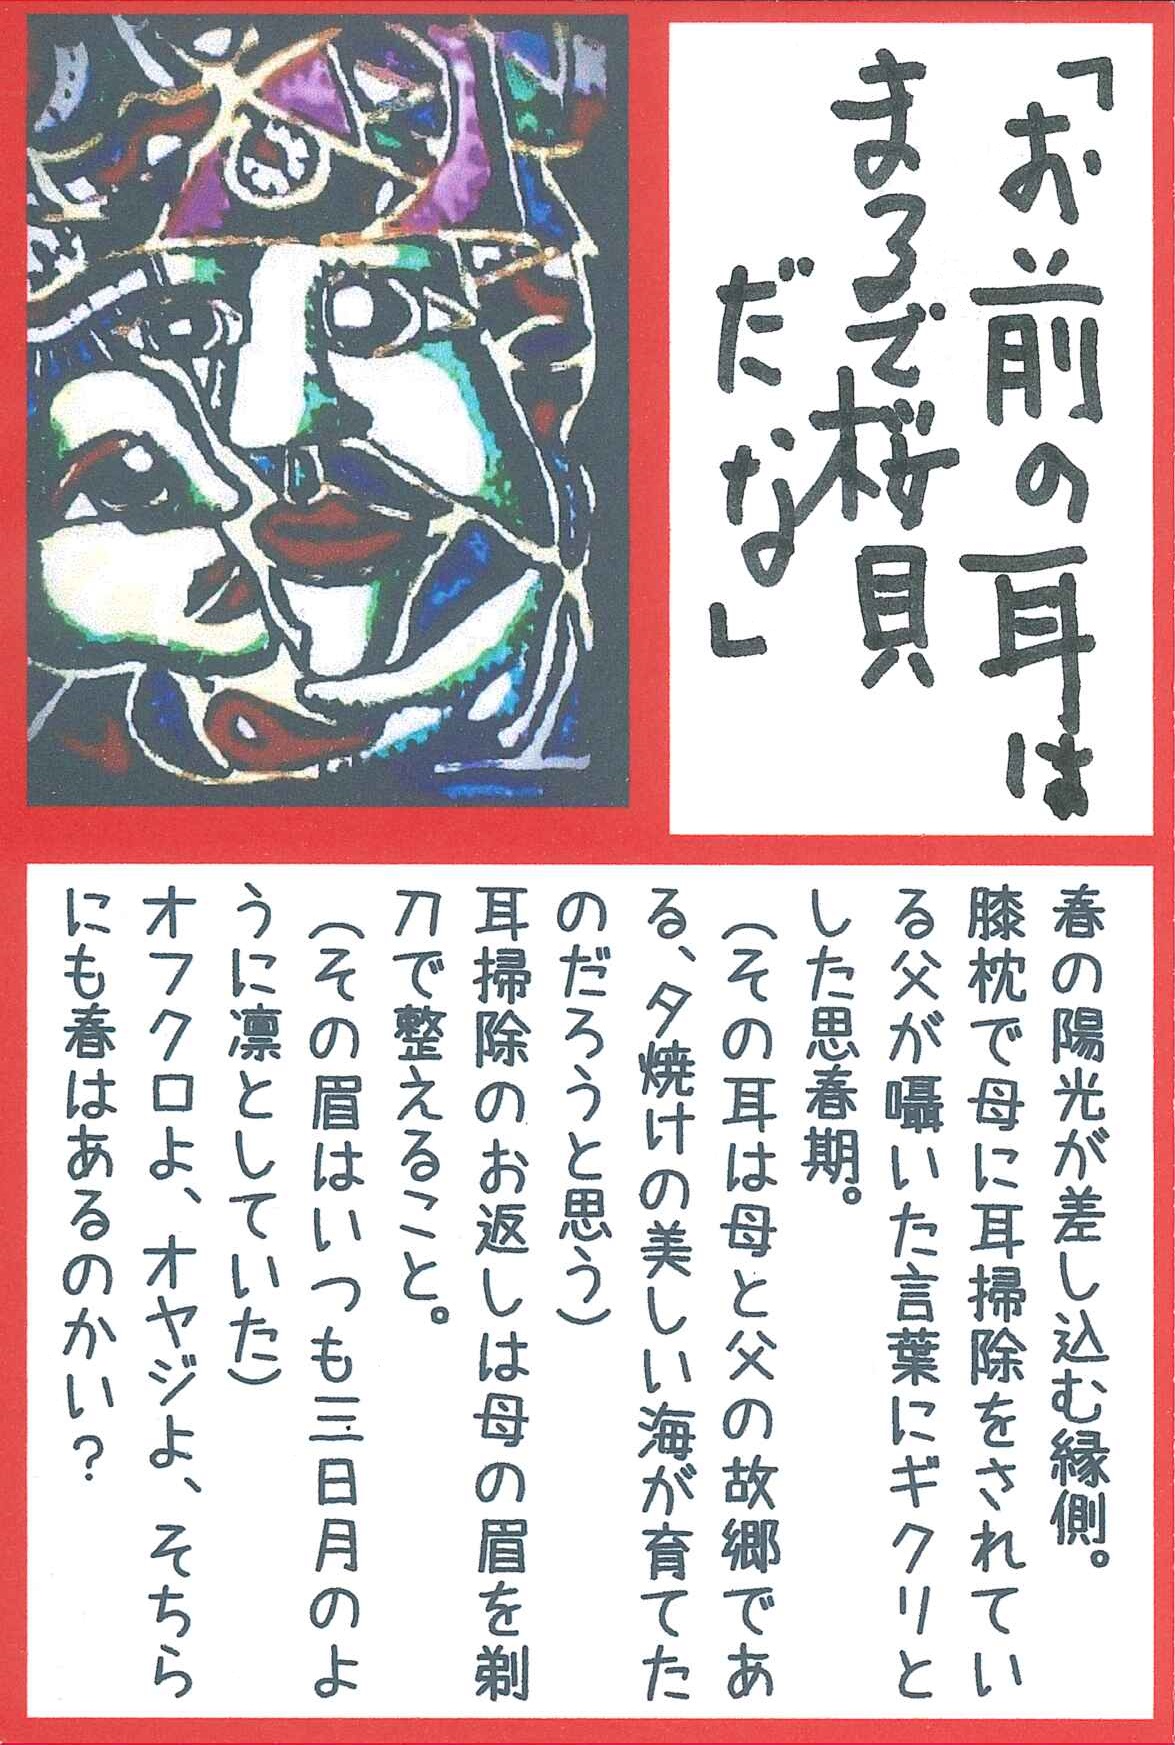 「お前の耳は
まるで桜貝
だな」
春の陽光が差し込む縁側。
膝枕で母に耳掃除をされてい
る父が囁いた言葉にギクリと
した思春期。
(その耳は母と父の故郷であ
る、夕焼けの美しい海が育てた
のだろうと思う)
耳掃除のお返しは母の眉を剃
刀で整えること。
(その眉はいつも三日月のよ
うに凛としていた)
オフクロよ、オヤジよ、そちら
にも春はあるのかい?